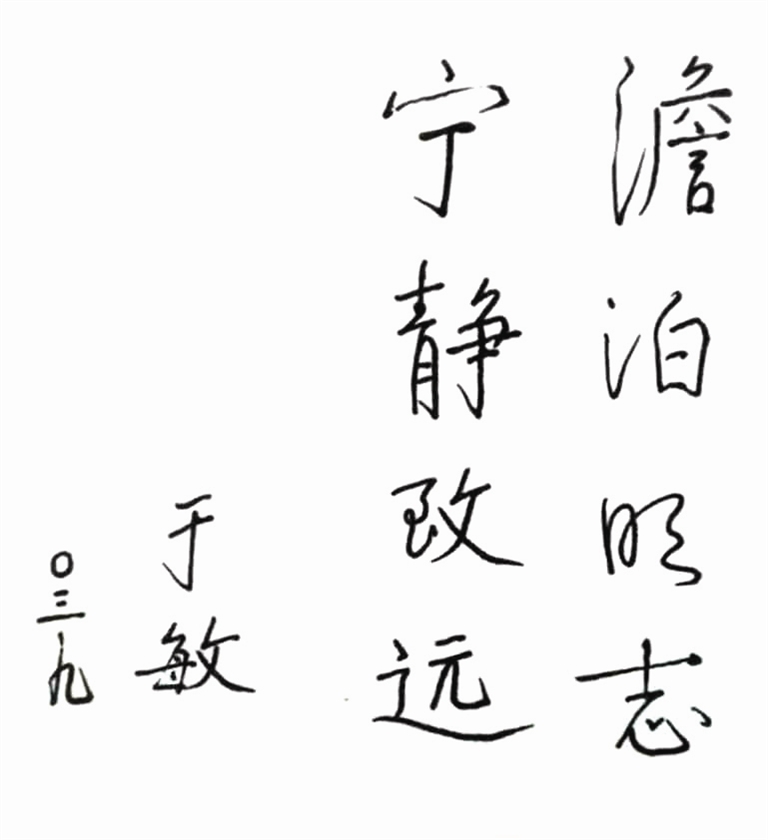 澹泊明志
宁静致远
于敏
〇三·九